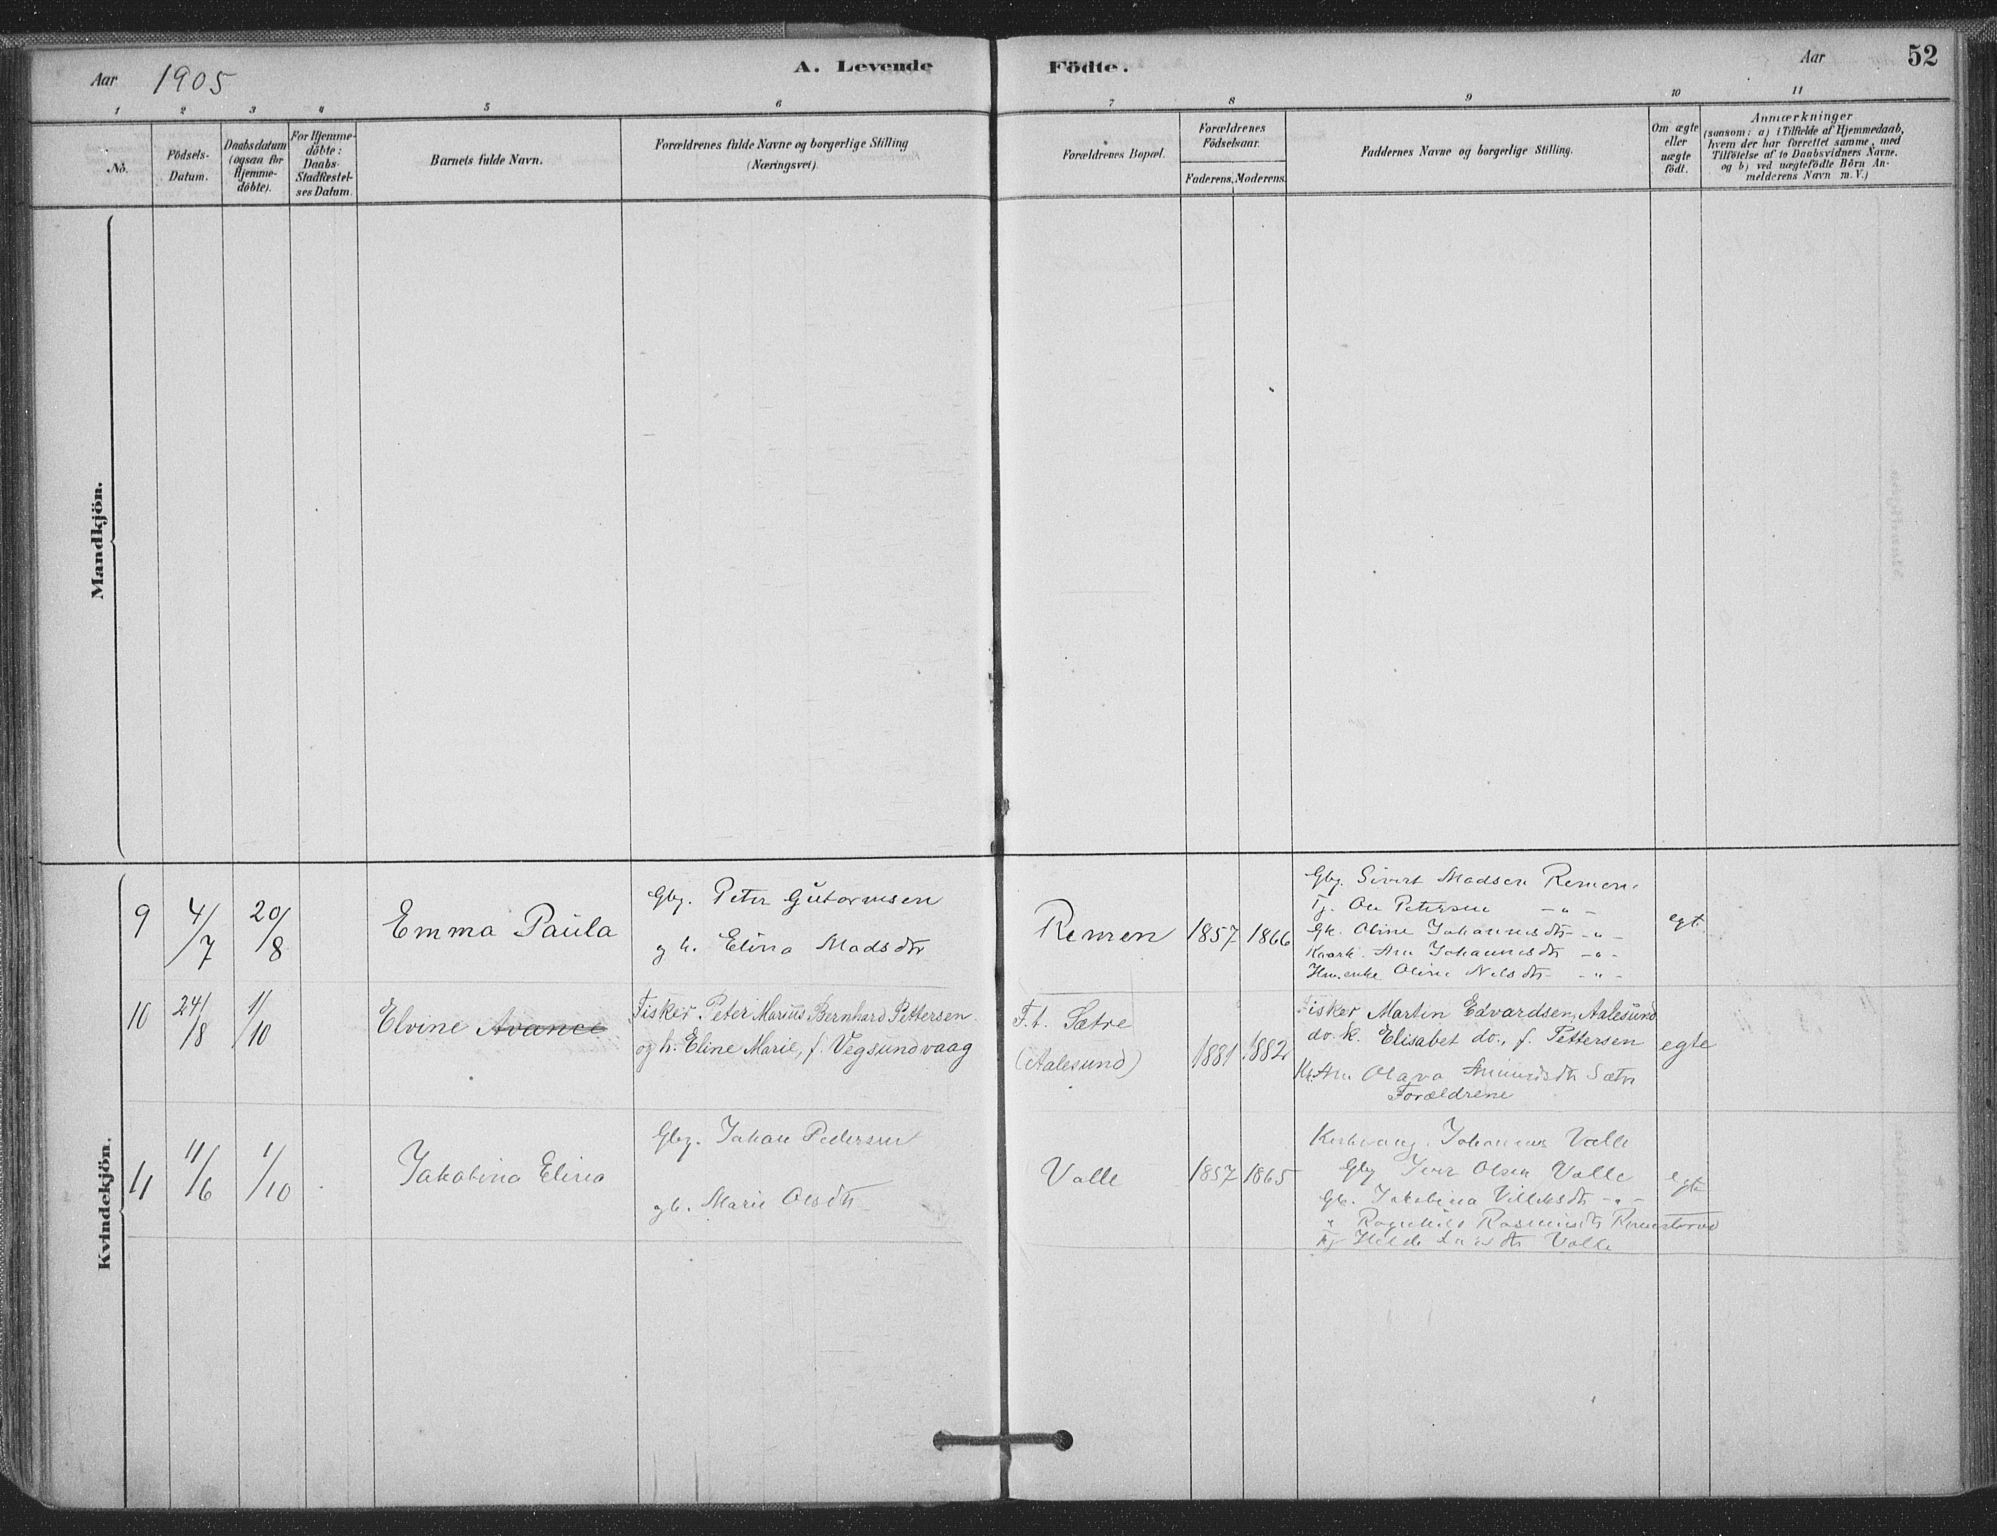 Aar 1905
A. Levende Födte.
Aar
52
1 2 3 4 5 6 7 8 9 10 11
No.
Födsels-
Datum.
Daabsdatum
(ogsaa for
Hjemme-
döbte).
For Hjemme-
döbte:
Daabs-
Stadfæstel-
ses Datum.
Barnets fulde Navn.
Forældrenes fulde Navne og borgerlige Stilling
(Næringsvei).
Forældrenes Bopæl.
Forældrenes
Födselsaar.
Faderens. Moderens.
Faddernes Navne og borgerlige Stilling.
Om ægte
eller
uægte
födt.
Anmærkninger
(saasom: a) i Tilfælde af Hjemmedaab,
hvem der har forrettet samme, med
Tilföielse af to Daabsvidners Navne.
og b) ved uægtefödte Börn An-
melderens Navn m. V.)
Mandkjön.
Kvindekjön.
9
4/7
20/8
Emma Paula
Gbg. Peter Gutormsen
g h. Elina Madsdtr
Remen
1857
1866
Gbg. Sivert Madsen Remen.
Tj. Ole Petersen —"—
Gk. Oline Johannesdtr —"—
Kaark. Ane Johannesdtr —"—
Oline Nilsdtr —"—
egt
10
24/8
1/10
Elvine Avance
Fisker Peter Marius Bernhard Pettersen.
og h. Eline Marie, f. Vegsundvaag
F. t. Sætre
(Aalesund)
1881
1882
Fisker Martin Edvardsen, Aalesund
do. k. Elisabet do., f. Pettersen
Olava Amundsdtr Sætre
Forældrene
egte
11
11/6
1/10
Jakobina Elina
Gbg. Johan Pedersen
g h. Marie Olsdtr
Valle
1857
1865
Johannes Valle
Gbg Iver Olsen Valle
Gk. Jakobina Villeksdtr —"—
" Ragnhild Rasmusdtr Remestrand
Tj Valle
egte